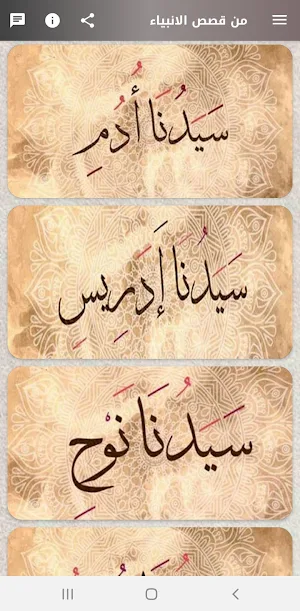 من قصص الانبياء
سَيَدُنَا أُدُمِ
سَيَدُنَا إَدَرِيسِ
سَيَدُنَا نَوْحِ